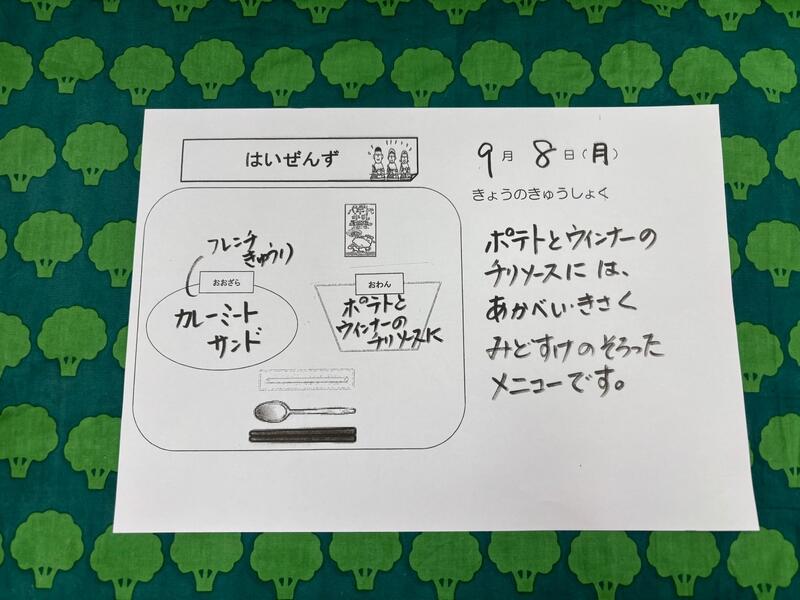 はいぜんず
9月8日(月)
きょうのきゅうしょく
フレンチ
きゅうり
おおざら
カレーミート
サンド
牛乳
おわん
ポテトと
ウィンナーの
チリソースに
ポテトとウィンナーの
チリソースには、
あかべい・きさく
みどすけのそろった
メニューです。